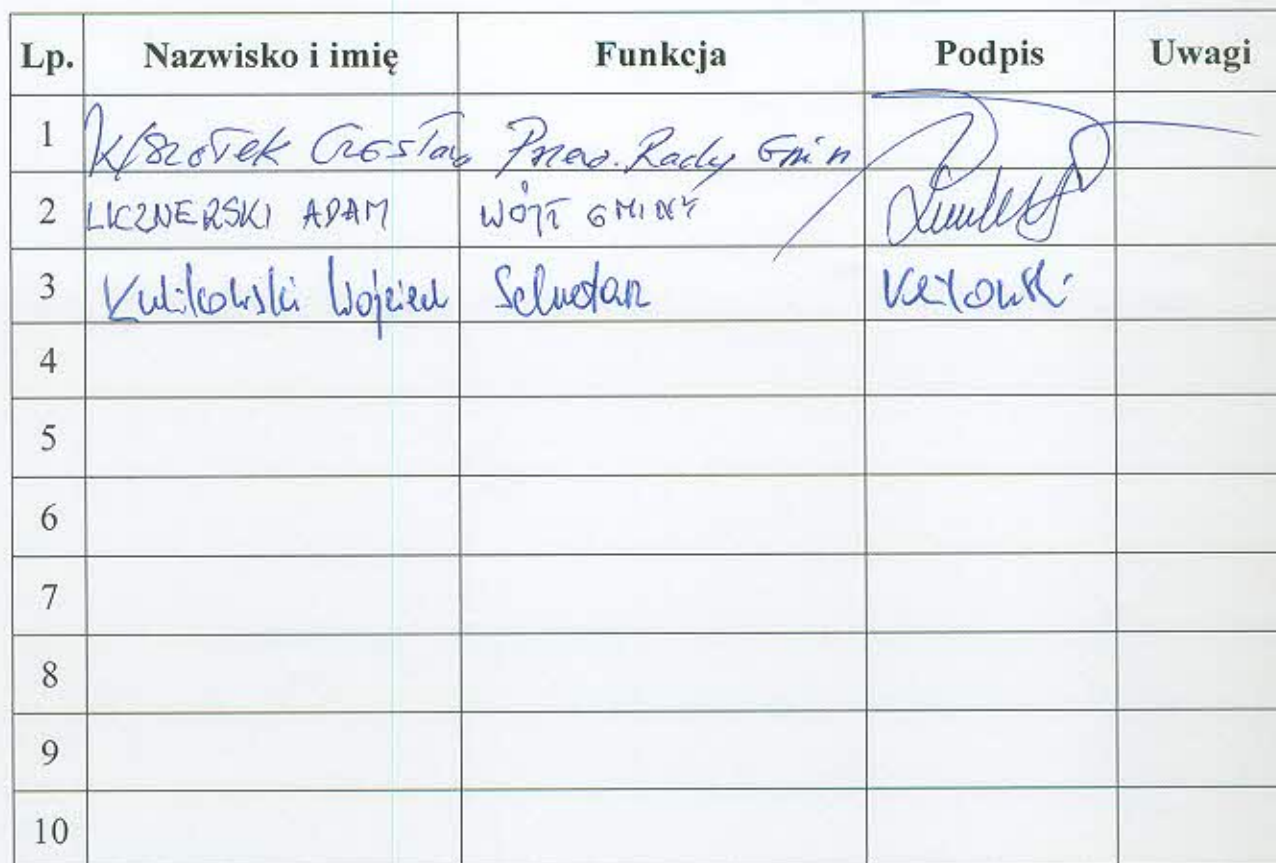 Lp. Nazwisko i imię Funkcja Podpis Uwagi
1 Czesław Przew. Rady Gmin
2 LICZNERSKI ADAM WÓJT GMINY
3 Kulikowski Wojciech Sekretarz
4
5
6
7
8
9
10